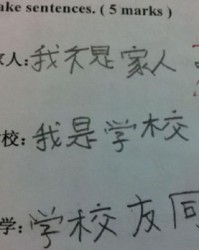 ake sentences. ( 5 marks )
人:我不是家人
校:我是学校
学:学校友同